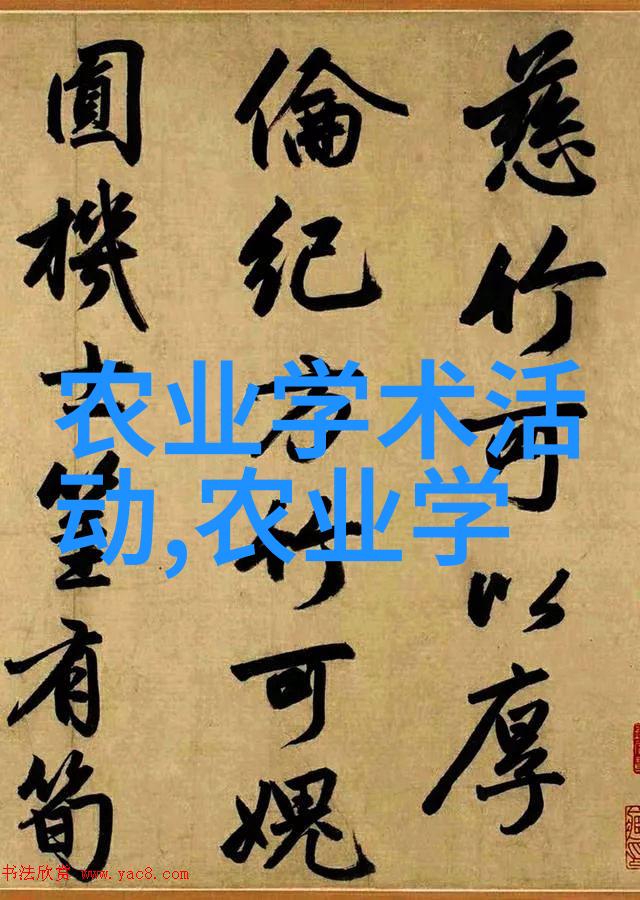 慈竹可以厚
倫紀方竹可媿
圓機士篁有筍
农业学术活
动,农业学
书法欣赏 www.yac8.com